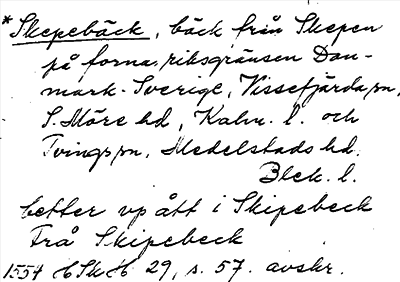 * Skepebäck, bäck från Skepen
på forna riksgränsen Dan-
mark-Sverige, Vissefjärda sn,
S. Möre hd, Kalm. l. och
Tvings sn, Medelstads hd.
Blek. l.
better vp ått i Skipebeck
Frå Skipebeck
1554 HSkH 29, s. 57. avskr.